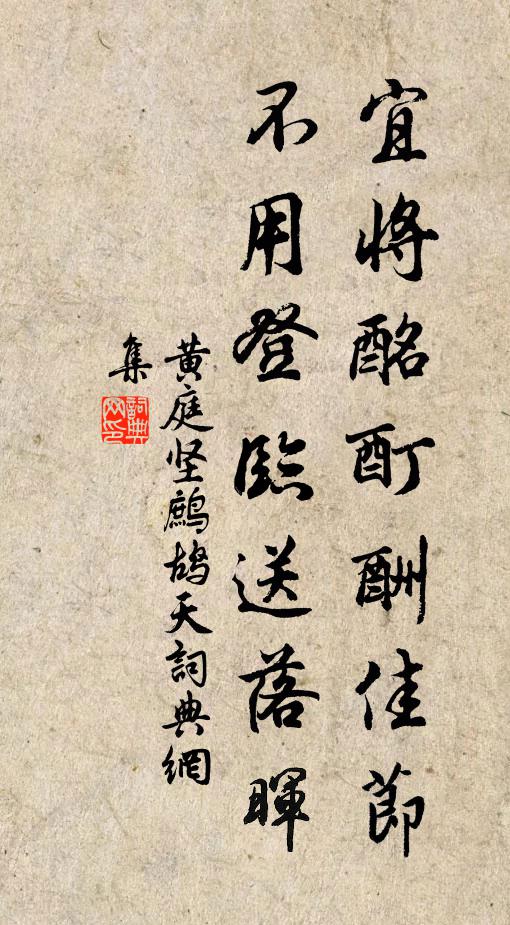 宜将酩酊酬佳節
不用登臨送落暉
黄庭坚鷓鴣天詞典網
集
詞典網印